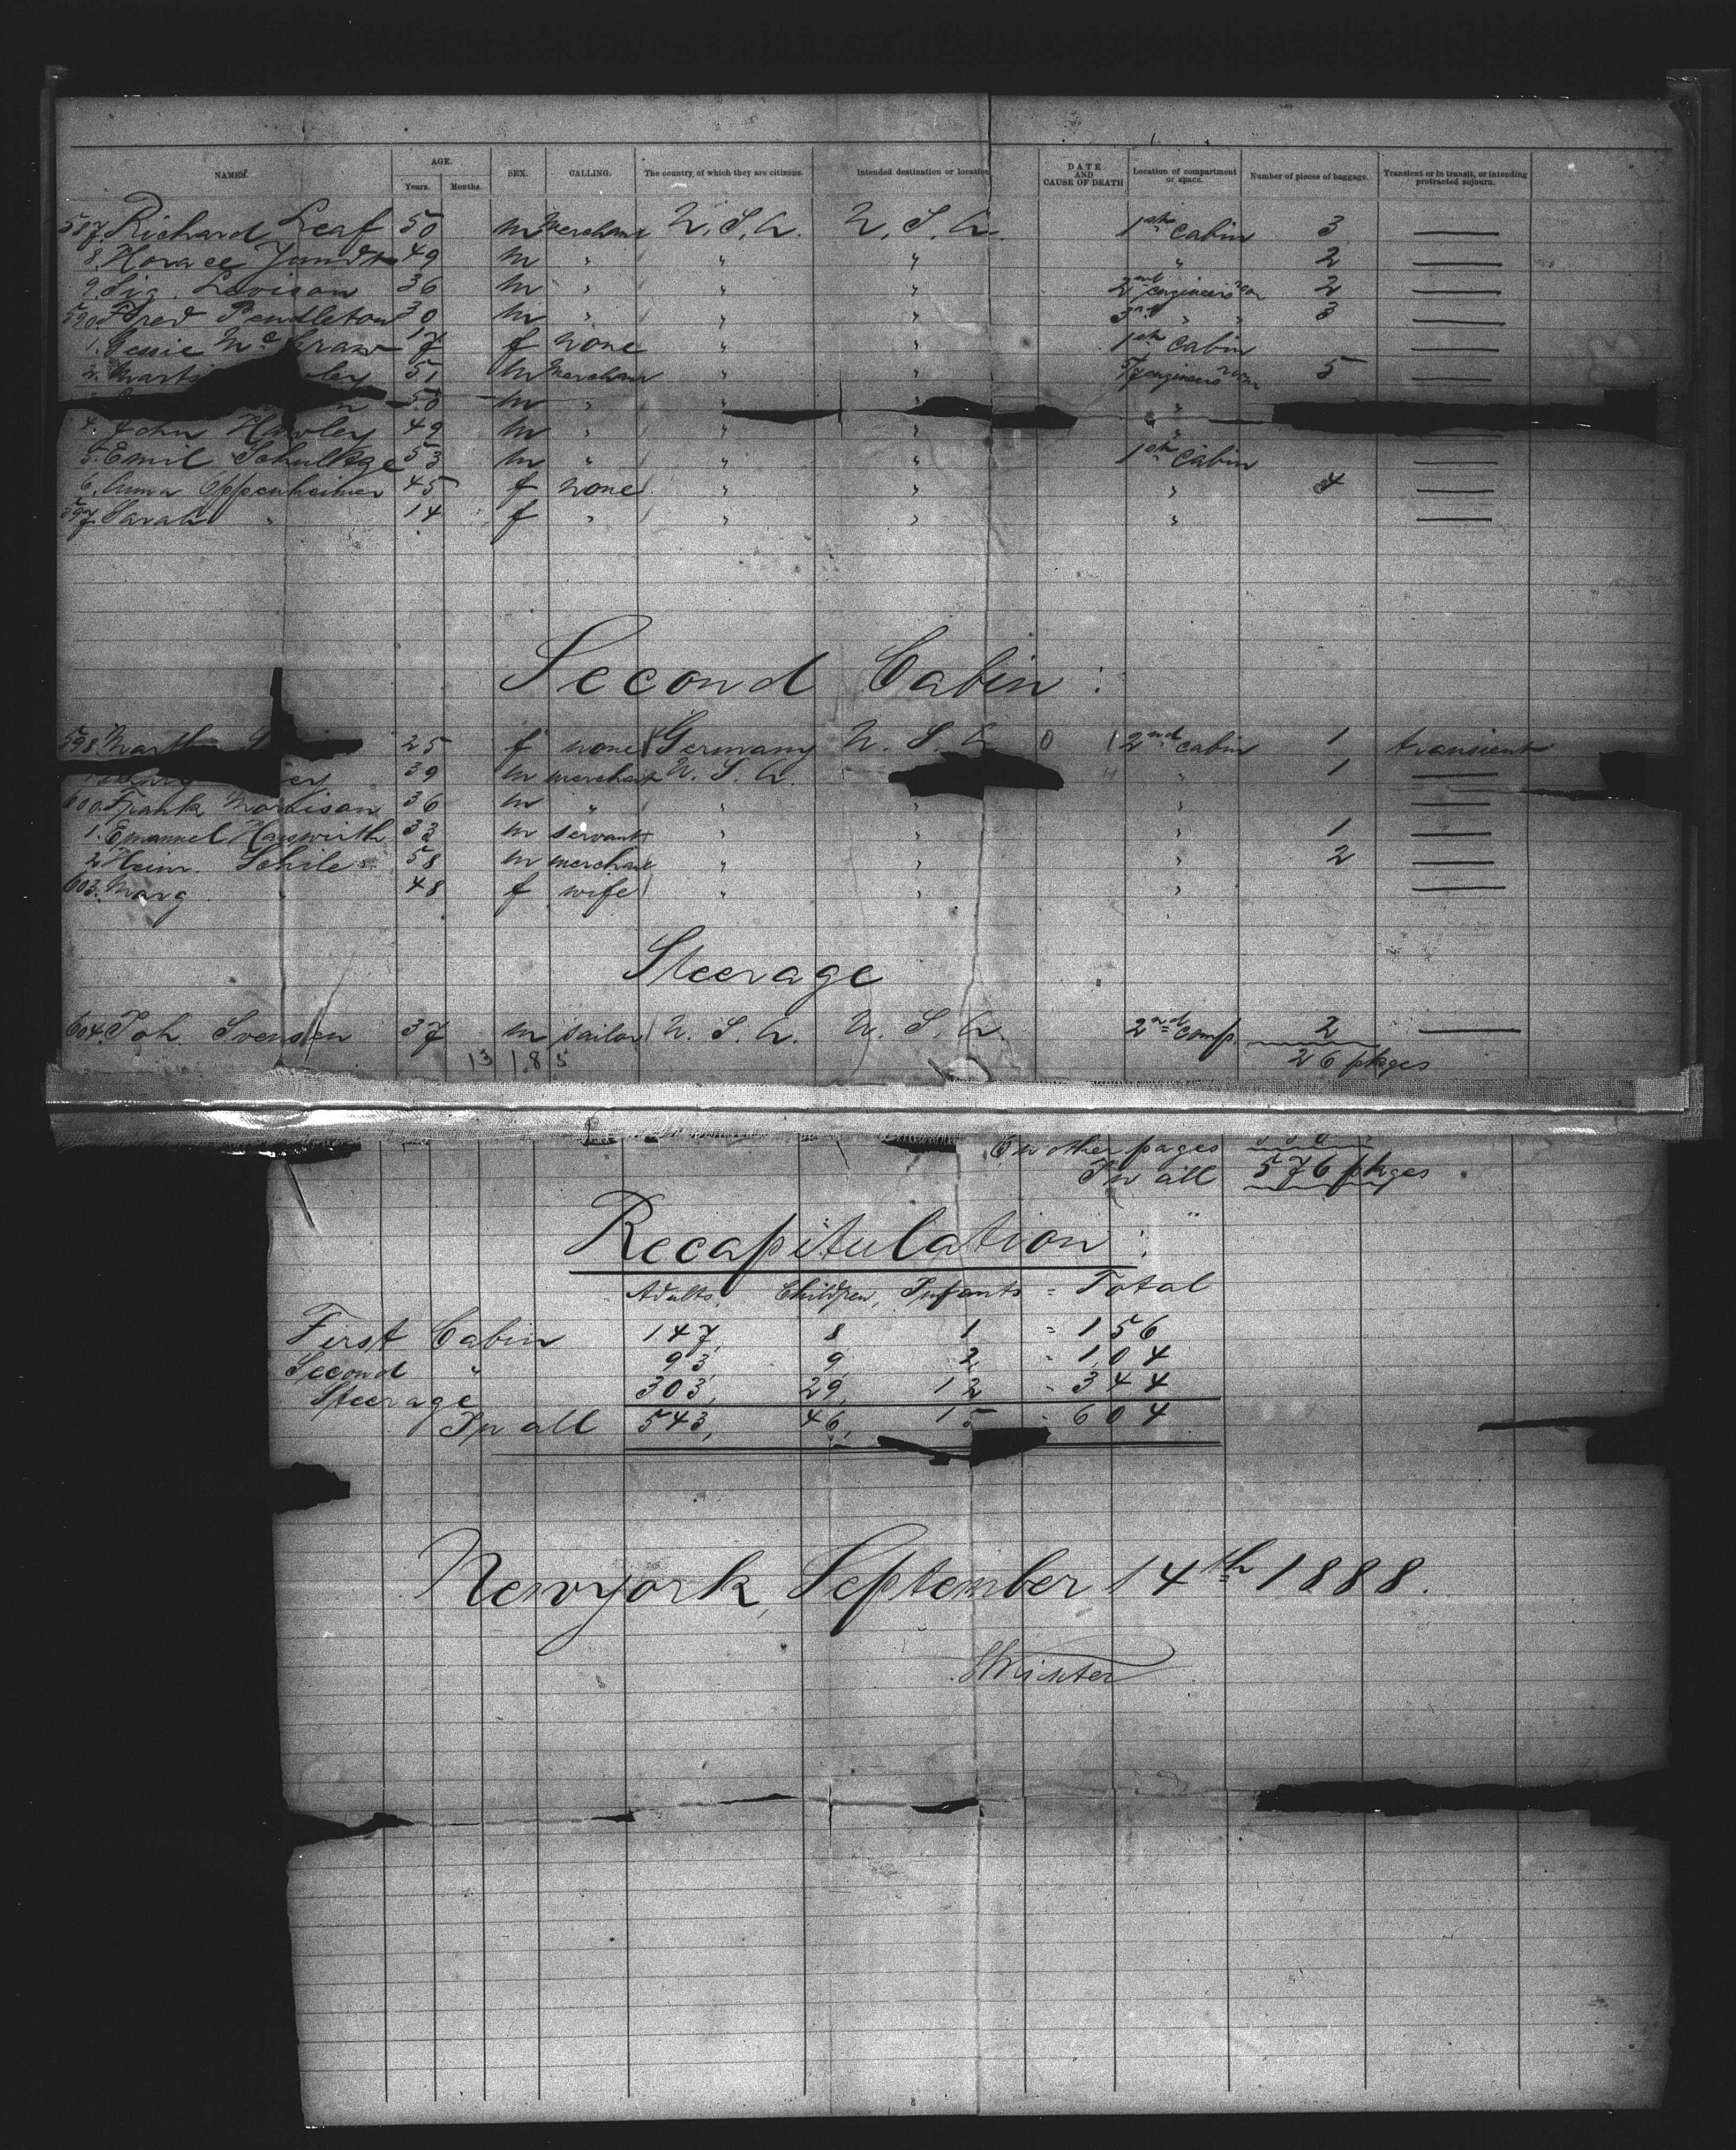 NAMES. AGE. Years. Months. SEX. CALLING. The country of which they are citizens. Intended destination or location DATE AND CAUSE OF DEATH Location of compartment or space. Number of pieces of baggage. Transient or in transit, or intending protracted sojourn.
587. Richard Leaf 50 m Merchant U. S. A. U. S. A. 1st Cabin 3 —
8. Horace 49 m " " " " 2 —
9. Sig. Levison 36 m " " " 2nd engineers room 2 —
590. Fred Pendleton 30 m " " " 3rd " " 3 —
1. Jessie Mc 17 f none " " 1st Cabin —
2. 51 m Merchant " " engineers room 5 —
50 m " " " "
4. John Hawley 49 m " " " "
5. Emil 53 m " " " 1st Cabin —
6. Anna Oppenheimer 45 f none " " " 4 —
597. Sarah " 14 f " " " " —
Second Cabin :
598. Martha 25 f none Germany U. S. A. 0 2nd cabin 1 transient
39 m merchant U. S. A. " 1 —
600. Frank Morrison 36 m " " " " —
1. Emanuel 33 m servant " " " 1 —
2. Heinr. Schile 58 m merchant " " " 2 —
603. Marg " 48 f wife " " " —
Steerage
604. Joh. Svensen 37 m sailor U. S. A. U. S. A. 2nd comp. 2 —
13 1.8 5 26 pkges
On other pages
In all 576 pkges
Recapitulation :
Adults, Children, Infants = Total
First Cabin 147, 8 1 = 156
Second " 93, 9, 2, = 104
Steerage 303, 29, 12 = 344
In all 543, 46, 15 = 604
Newyork, September 14th 1888.